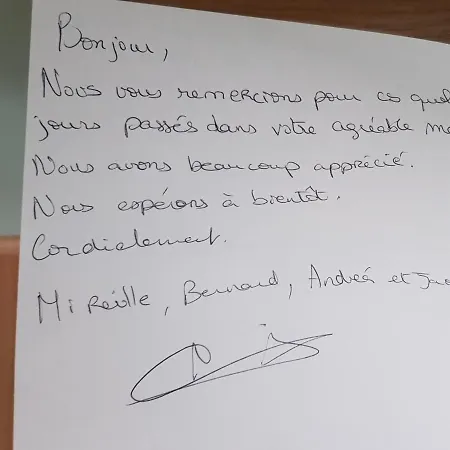 Bonjour,
Nous vous remercions pour ces quel
jours passés dans votre agréable ma
Nous avons beaucoup apprécié.
Nous espérons à bientôt.
Cordialement.
Mireille, Bernard, Andréa et Jac